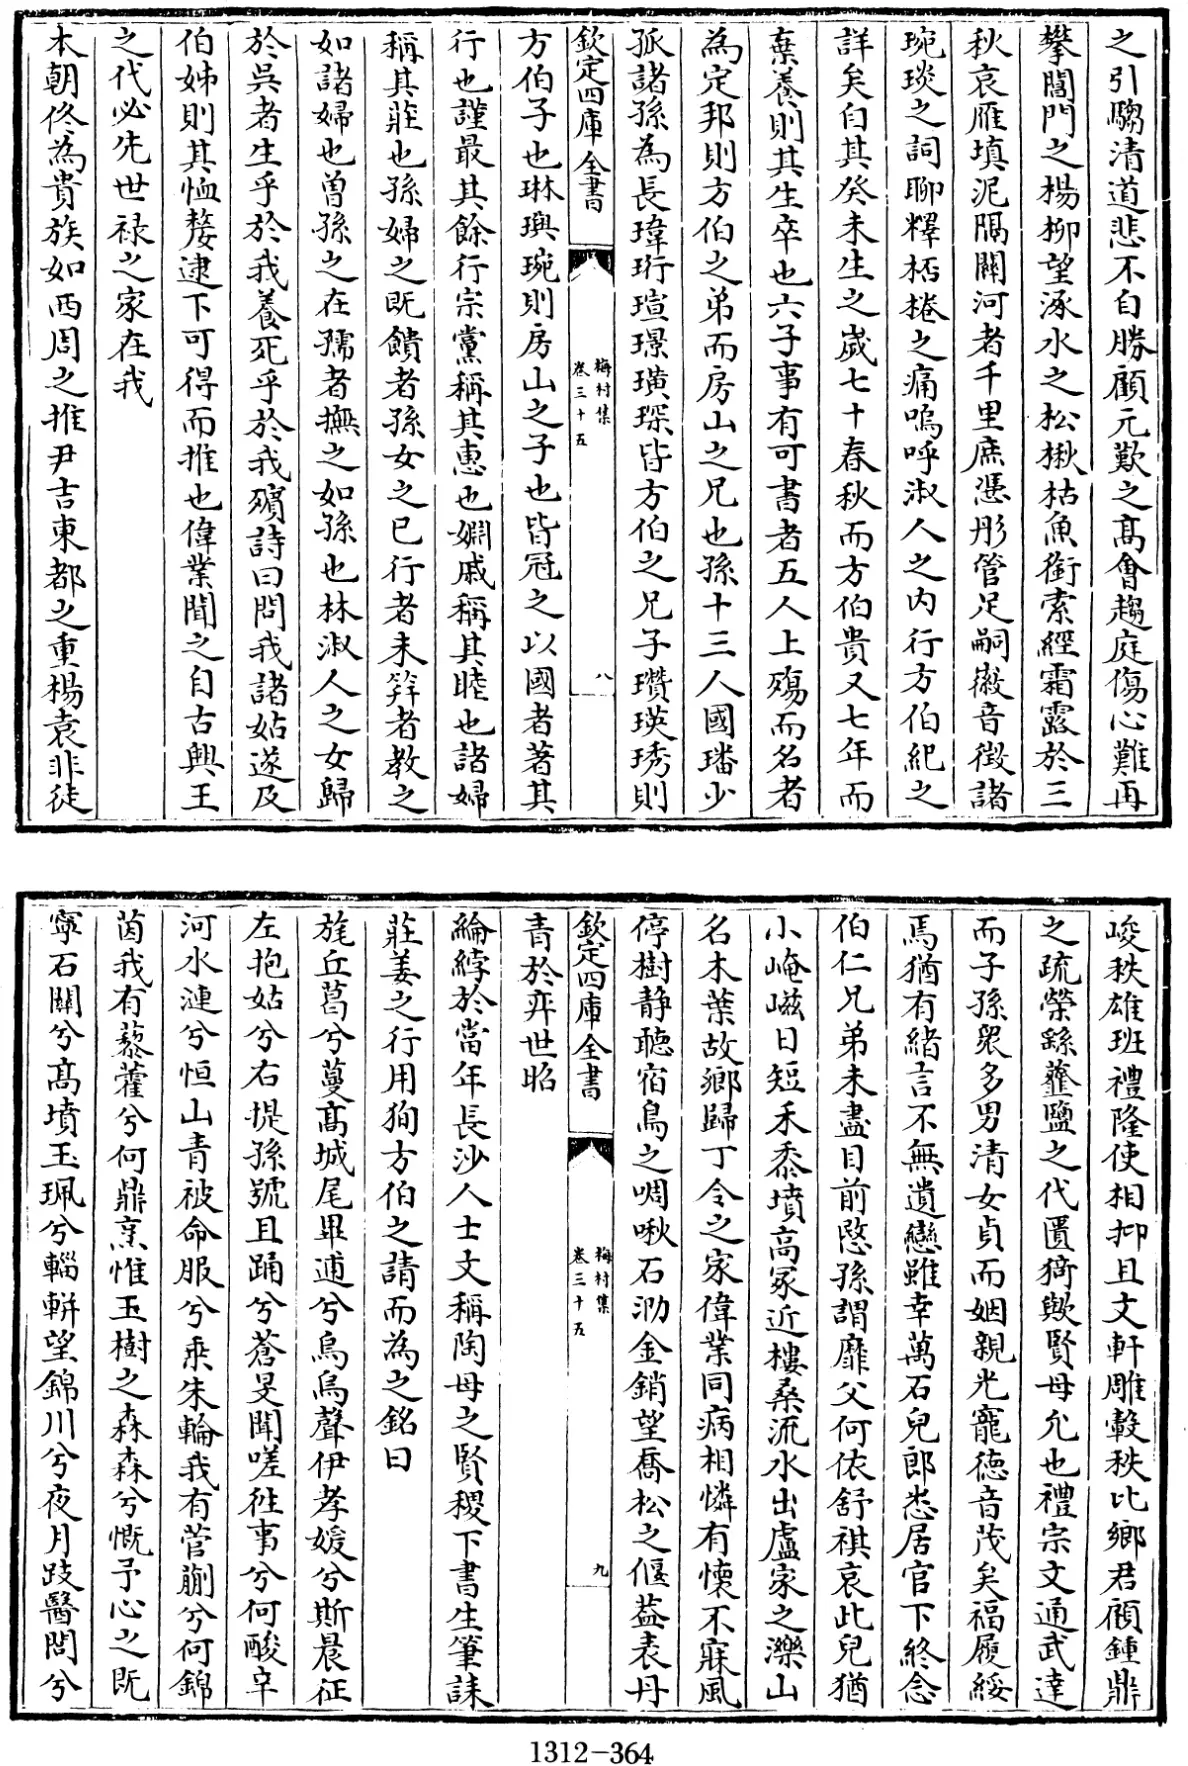 之引騶清道悲不自勝顧元歎之髙會趨庭傷心難再
攀閶門之楊柳望涿水之松楸枯魚銜索經霜露於三
秋哀雁填泥隔關河者千里庶憑彤管足嗣徽音徴諸
琬琰之詞聊釋桮棬之痛嗚呼淑人之内行方伯紀之
詳矣自其癸未生之嵗七十春秋而方伯貴又七年而
棄養則其生卒也六子事有可書者五人上殤而名者
為定邦則方伯之弟而房山之兄也孫十三人國璠少
孤諸孫為長瑋珩瑄璟璜琛皆方伯之兄子瓚瑛琇則
欽定四庫全書
梅村集
卷三十五
八
方伯子也琳璵琬則房山之子也皆冠之以國者著其
行也謹最其餘行宗黨稱其惠也婣戚稱其睦也諸婦
稱其莊也孫婦之既饋者孫女之已行者未笄者教之
如諸婦也曾孫之在孺者撫之如孫也林淑人之女歸
於吳者生乎於我養死乎於我殯詩曰問我諸姑遂及
伯姊則其恤嫠逮下可得而推也偉業聞之自古興王
之代必先世禄之家在我
本朝佟為貴族如西周之推尹吉東都之重楊袁非徒
峻秩雄班禮隆使相抑且文軒雕轂秩比鄉君顧鍾鼎
之疏榮繇虀鹽之代匱猗歟賢母允也禮宗文通武達
而子孫衆多男清女貞而姻親光寵德音茂矣福履綏
焉猶有緒言不無遺戀雖幸萬石兒郎悉居官下終念
伯仁兄弟未盡目前愍孫謂靡父何依舒祺哀此兒猶
小崦嵫日短禾黍墳高冢近樓桑流水出盧家之濼山
名木葉故鄉歸丁令之家偉業同病相憐有懷不寐風
停樹静聽宿鳥之啁啾石泐金銷望喬松之偃葢表丹
欽定四庫全書
梅村集
卷三十五
九
青於弈世昭
綸綍於當年長沙人士文稱陶母之賢稷下書生筆誄
莊姜之行用狥方伯之請而為之銘曰
旄丘葛兮蔓髙城尾畢逋兮烏烏聲伊孝媛兮斯晨征
左抱姑兮右提孫號且踊兮蒼旻聞嗟徃事兮何酸辛
河水漣兮恒山青被命服兮乘朱輪我有菅蒯兮何錦
茵我有藜藿兮何鼎烹惟玉樹之森森兮慨予心之既
寧石闕兮髙墳玉珮兮輜軿望錦川兮夜月跂醫閭兮
1312-364